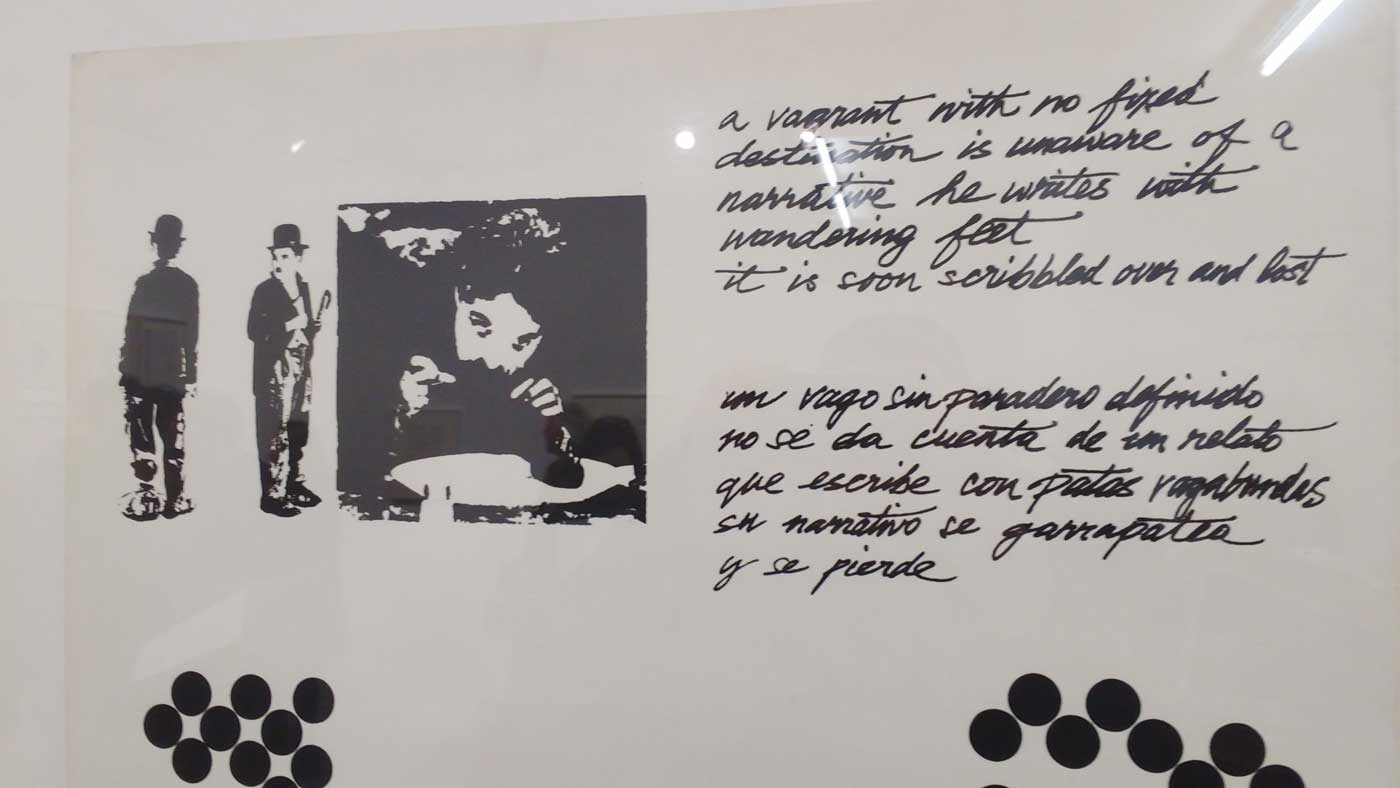 a vagrant with no fixed
destination is unaware of a
narrative he writes with
wandering feet
it is soon scribbled over and lost
un vago sin paradero definido
no se da cuenta de un relato
que escribe con patas vagabundas
su narrativo se garrapatea
y se pierde